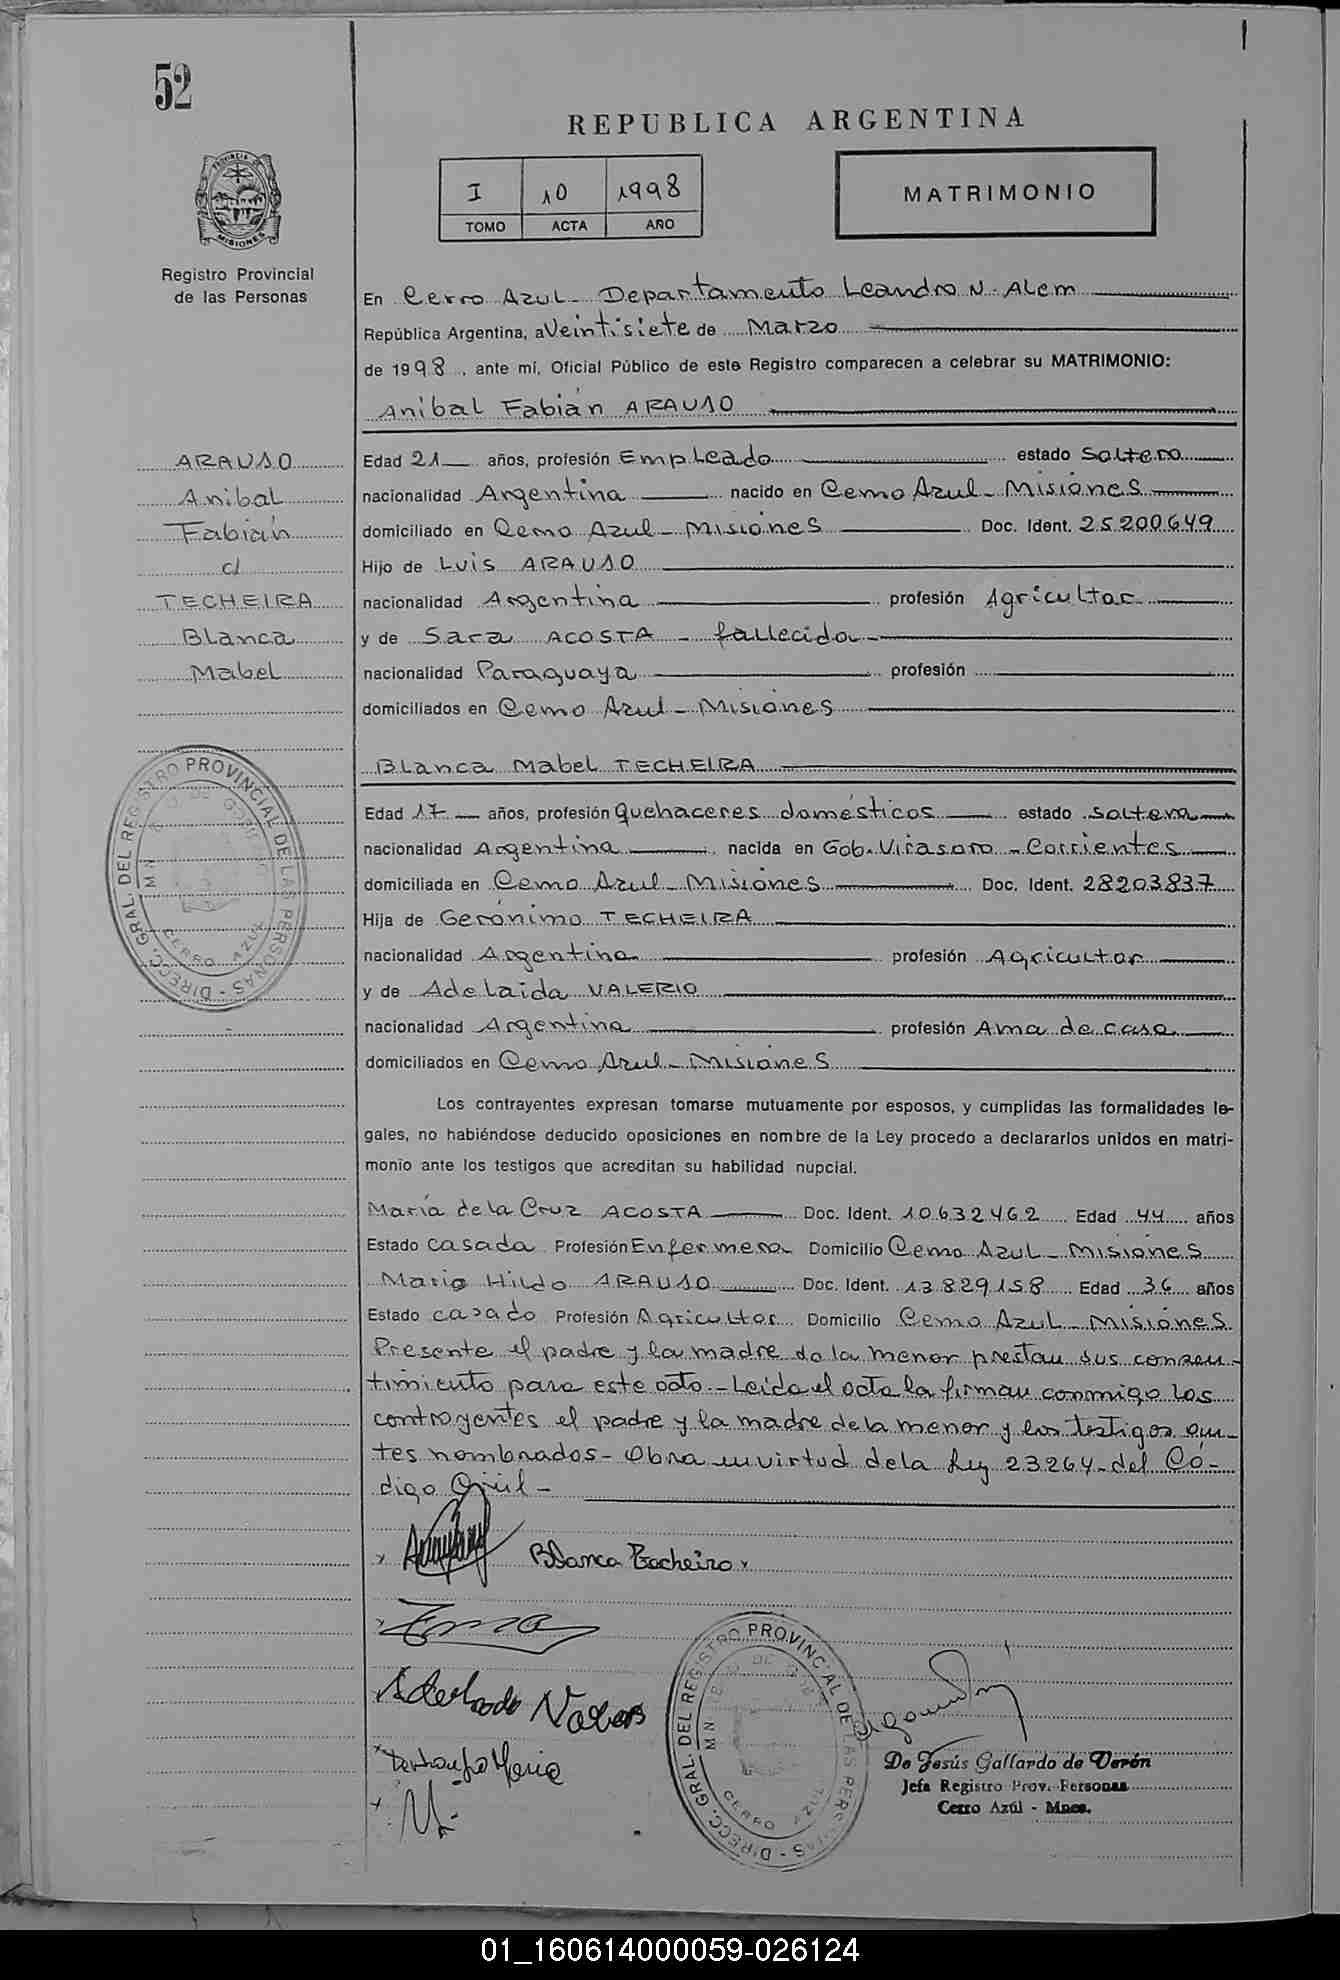 52
REPUBLICA ARGENTINA
I 10 1998
TOMO ACTA AÑO
MATRIMONIO
PROVINCIA DE MISIONES
Registro Provincial
de las Personas
En Cerro AZUL - Departamento Leandro N. ALem
República Argentina, a Veintisiete de Marzo
de 1998, ante mí, Oficial Público de este Registro comparecen a celebrar su MATRIMONIO:
Anibal Fabián ARAUJO
ARAUJO
Anibal
Fabián
c/
TECHEIRA
Blanca
Mabel
Edad 21 años, profesión EmpLeado estado Soltero
nacionalidad Argentina nacido en Cerro Azul - Misiones
domiciliado en Cerro Azul - Misiones Doc. Ident. 25.200.649
Hijo de Luis ARAUJO
nacionalidad Argentina profesión Agricultor
y de Sara ACOSTA - fallecida -
nacionalidad Paraguaya profesión
domiciliados en Cerro Azul - Misiones
Blanca Mabel TECHEIRA
Edad 17 años, profesión Quehaceres domésticos estado soltera
nacionalidad Argentina nacida en Gob. Virasoro - Corrientes
domiciliada en Cerro Azul - Misiones Doc. Ident. 28.203.837
Hija de Gerónimo TECHEIRA
nacionalidad Argentina profesión Agricultor
y de Adelaida VALERIO
nacionalidad Argentina profesión Ama de casa
domiciliados en Cerro Azul - Misiones
Los contrayentes expresan tomarse mutuamente por esposos, y cumplidas las formalidades le-
gales, no habiéndose deducido oposiciones en nombre de la Ley procedo a declararlos unidos en matri-
monio ante los testigos que acreditan su habilidad nupcial.
María de la Cruz ACOSTA Doc. Ident. 10.632.462 Edad 44 años
Estado casada Profesión Enfermera Domicilio Cerro Azul - Misiones
Mario Hildo ARAUJO Doc. Ident. 13.829.158 Edad 36 años
Estado casado Profesión Agricultor Domicilio Cerro Azul - Misiones
Presente el padre y la madre de la menor prestan sus consen-
timiento para este acto. - Leída el acta la firman conmigo los
contrayentes el padre y la madre de la menor y los testigos an-
tes nombrados - Obra en virtud de la Ley 23.264 - del Có-
digo Civil -
Blanca Techeira
DIRECC. GRAL. DEL REGISTRO PROVINCIAL DE LAS PERSONAS
CERRO AZUL
DIRECC. GRAL. DEL REGISTRO PROVINCIAL DE LAS PERSONAS
CERRO AZUL
De Jesús Gallardo de Verón
Jefa Registro Prov. Personas
Cerro Azúl - Mnes.
01_160614000059-026124